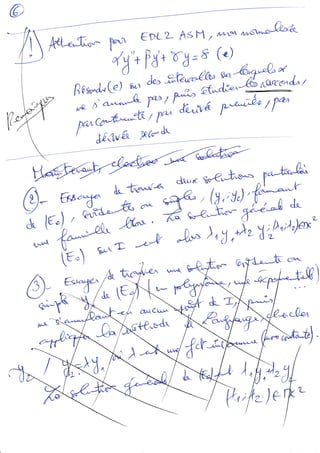 ⑥
! Attention pour EDL2 ASM, non normalisée
αy" + βy' + γy = δ (e)
Remarques
Résoudre (e) sur des intervalles sur lesquels α
ne s'annule pas, puis étudier les raccords,
par continuité, par dérivée première, par
dérivée seconde
Maintenant, cherchons une solution
②- Essayer de trouver deux solutions particulières
de (E₀), évidentes ou simples, (y₁, y₂), formant
une famille libre. La solution générale de
(E₀) sur I est alors λ₁y₁ + λ₂y₂, (λ₁, λ₂) ∈ K²
③- Essayer de trouver une solution évidente ou
simple y₁ de (E₀) (un polynôme, une exponentielle)
ne s'annulant en aucun point de I, puis
appliquer la méthode de Lagrange, chercher
y₂ / y₂ = λy₁, où λ est une fct inconnue (non constante).
La solution générale de (E₀) est λ₁y₁ + λ₂y₂
(λ₁, λ₂) ∈ K²